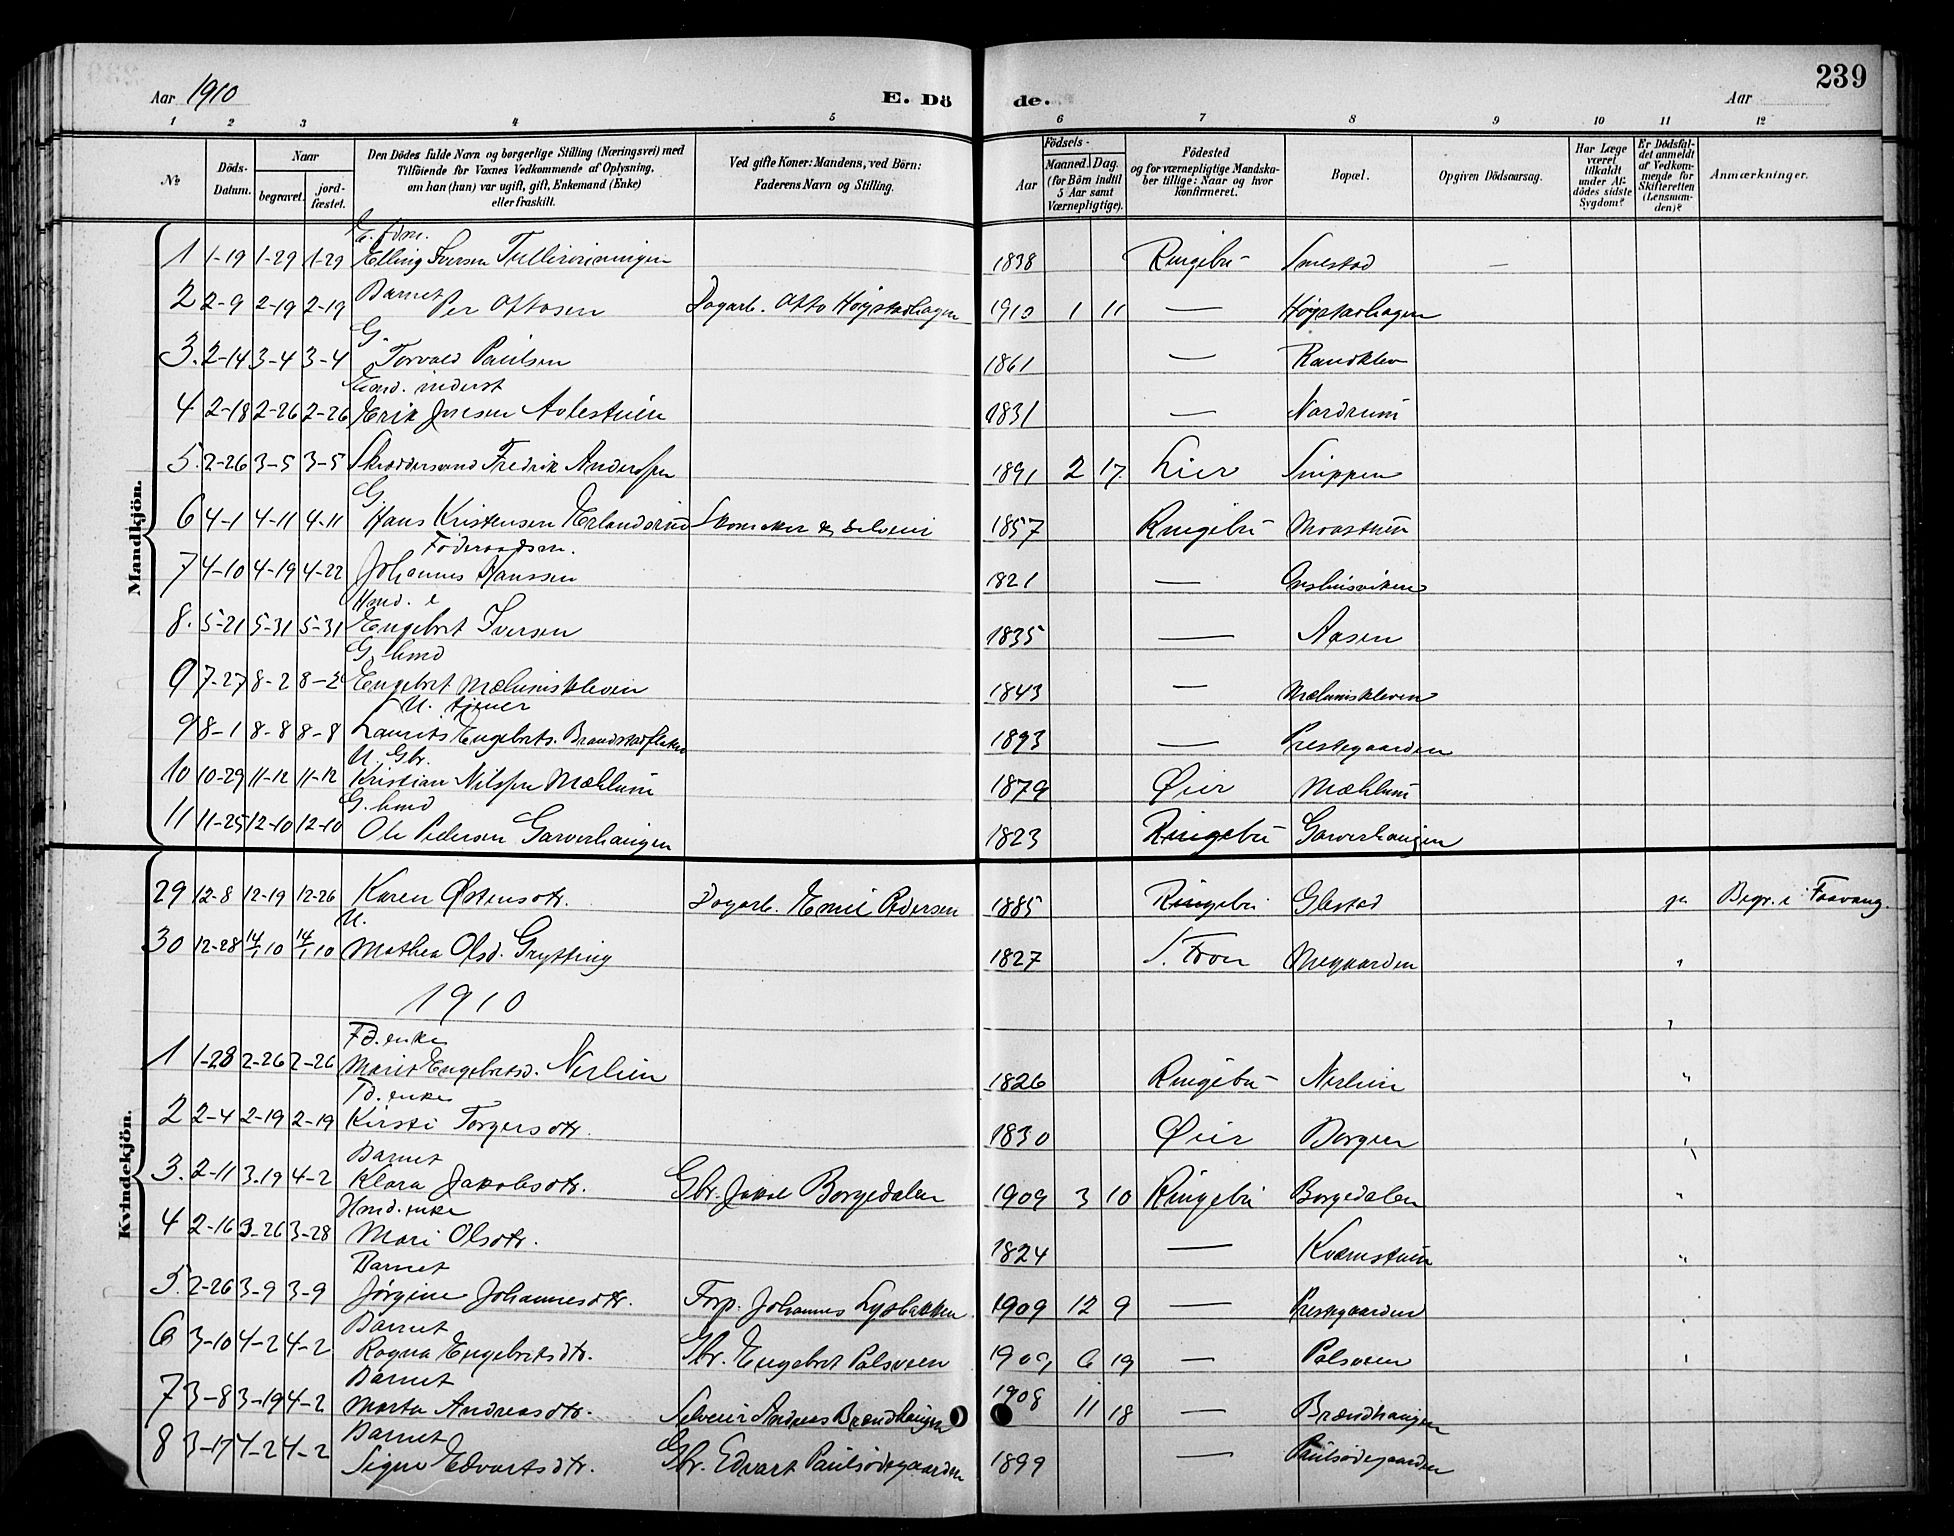 239
Aar 1910 E. Dö de. Aar
1 2 3 4 5 6 7 8 9 10 11 12
№
Döds-Datum.
Naar
begravet.
jord-fæstet.
Den Dödes fulde Navn og borgerlige Stilling (Næringsvei) med
Tilföiende for Voxnes Vedkommende af Oplysning,
om han (hun) var ugift, gift, Enkemand (Enke)
eller fraskilt.
Ved gifte Koner: Mandens, ved Börn:
Faderens Navn og Stilling.
Födsels-
Aar
Maaned.
Dag.
(for Börn indtil
5 Aar samt
Værnepligtige).
Födested
og for værnepligtige Mandska-
ber tillige: Naar og hvor
konfirmeret.
Bopæl.
Opgiven Dödsaarsag.
Har Læge
været
tilkaldt
under Af-
dödes sidste
Sygdom?
Er Dödsfal-
det anmeldt
af Vedkom-
mende for
Skifteretten
(Lensman-
den)?
Anmærkninger.
Mandkjön.
1 1-19 1-29 1-29 Elling Iversen 1838 Ringebu Smestad —
Barnet
2 2-9 2-19 2-19 Per Ottosen Dagarb. Otto Høystadhagen 1910 1 11 — Høystadhagen
G.
3. 2-14 3-4 3-4 Torvald Paulsen 1861 — Randklev
inderst
4 2-18 2-26 2-26 Erik 1831 — Nordrum
5. 2-26 3-5 3-5 Skræddersvend Fredrik Anderssen 1891 2 17. Lier Snippen
G.
6 4-1 4-11 4-11 Hans Kristensen Erlandsrud Skomaker & selveier 1857 Ringebu Moastuen
Føderaadsm.
7 4-10 4-19 4-22 Johannes Hanssen 1821 —
Hmd. e
8. 5-21 5-31 5-31 Engebret Iversen 1835 — Aasen
G. hmd
9 7-27 8-2 8-2 Engebret Mælumskleven 1843 — Mælumskleven
U. tjener
9 8-1 8-8 8-8 Laurits Engebrets. Brandstadflaten 1893 — Prestegaarden
U. Gbr.
10 10-29 11-12 11-12 Kristian Nilssen Mæhlum 1879 Øier Mæhlum
G. hmd
11 11-25 12-10 12-10 Ole Pedersen Garverhaugen 1823 Ringebu Garverhaugen
Kvindekjön.
29 12-8 12-19 12-26 Karen Østensdtr. Dagarb. Emil Pedersen 1885 Ringebu Glestad ja Begr. i Faavang.
U.
30 12-28 14/1 10 14/1 10 Mathea Olsd. Grytting 1827 S. Fron "
1910
"
Fd. enke
1 1-28 2-26 2-26 Marit Engebretsd. Nerlien 1826 Ringebu Nerlien "
Fd. enke
2 2-4 2-19 2-19 Kirsti Torgersdtr. 1830 Øier Borgen "
Barnet
3. 2-11 3.19 4-2 Klara Jakobsdtr. Gbr. Jakob Borgedalen 1909 3 10 Ringebu Borgedalen "
Hmd. enke
4 2-16 3-26 3-28 Mari Olsdtr. 1824 — Kværnstuen "
Barnet
5. 2-26 3-9 3-9 Jørgine Johannesdtr. Forp. Johannes Lysbakken 1909 12 9 — Prestegaarden "
Barnet
6 3-10 4-2 4-2 Ragna Engebretsdtr. Gbr. Engebret Palsveen 1909 6 19 — Palsveen "
Barnet
7 3-8 3-19 4-2 Marta Andreasdtr. Selveier Andreas Brændhaugen 1908 11 18 — Brændhaugen
Barnet
8 3-17 4-2 4-2 Signe Edvartsdtr. Gbr. Edvart Paulsødegaarden 1899 — Paulsødegaarden